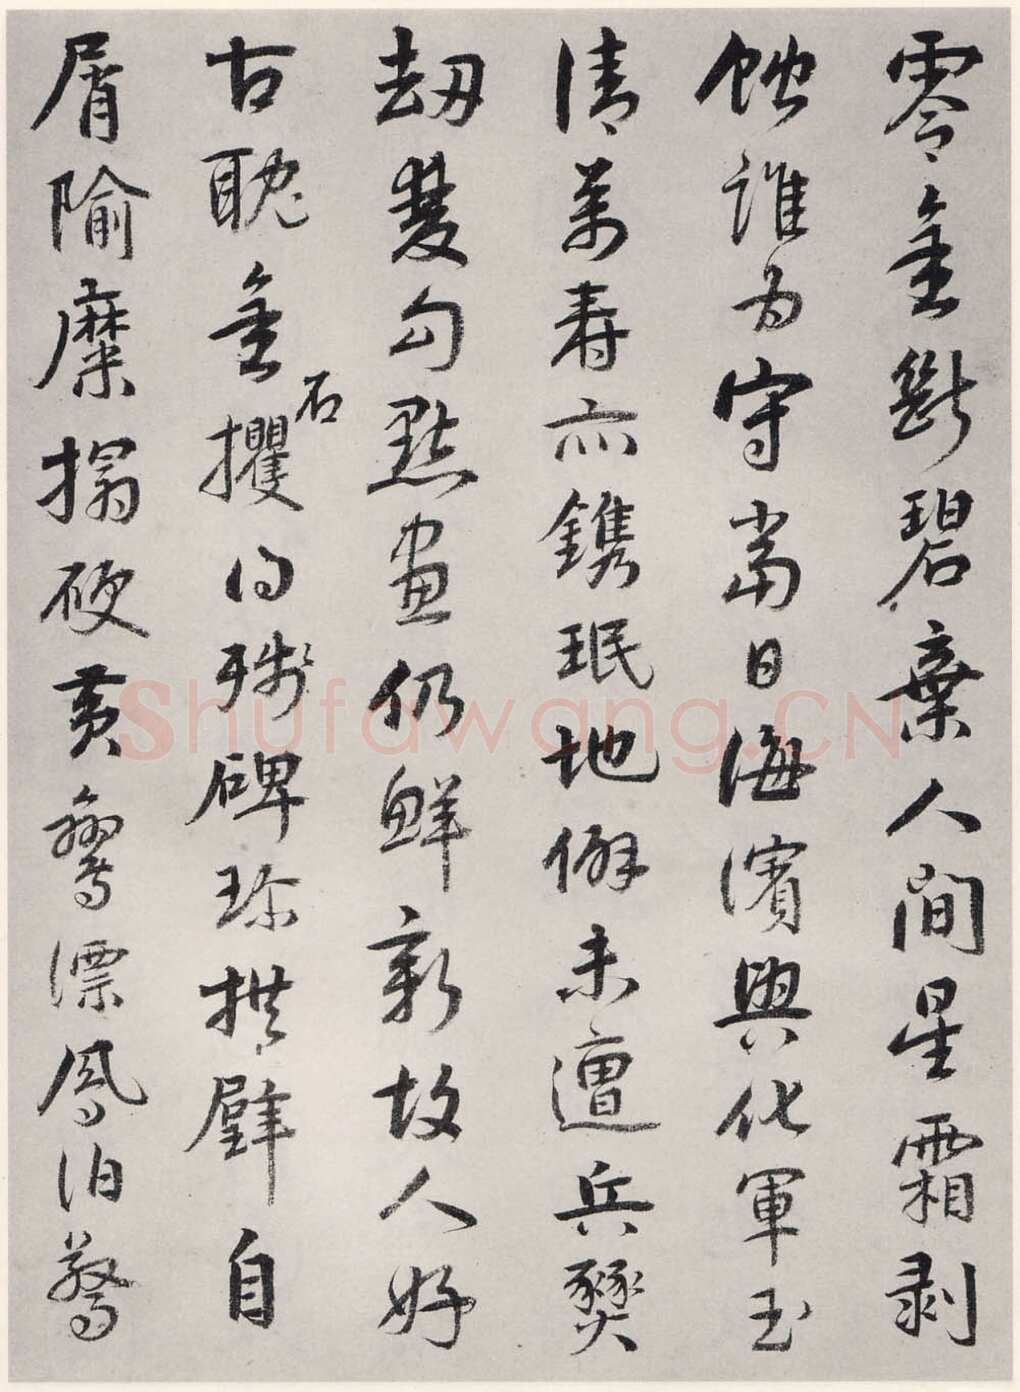 零金斷碧棄人間星霜剥
蝕誰为守當日海濱興化軍玉
清萬壽亦鐫珉地僻未遭兵燹
劫雙勾點畫仍鮮新故人好
古耽金石攫得殘碑珍拱璧自
屑隃糜搨硬黄鸞漂鳳泊驚
Shufawang.CN